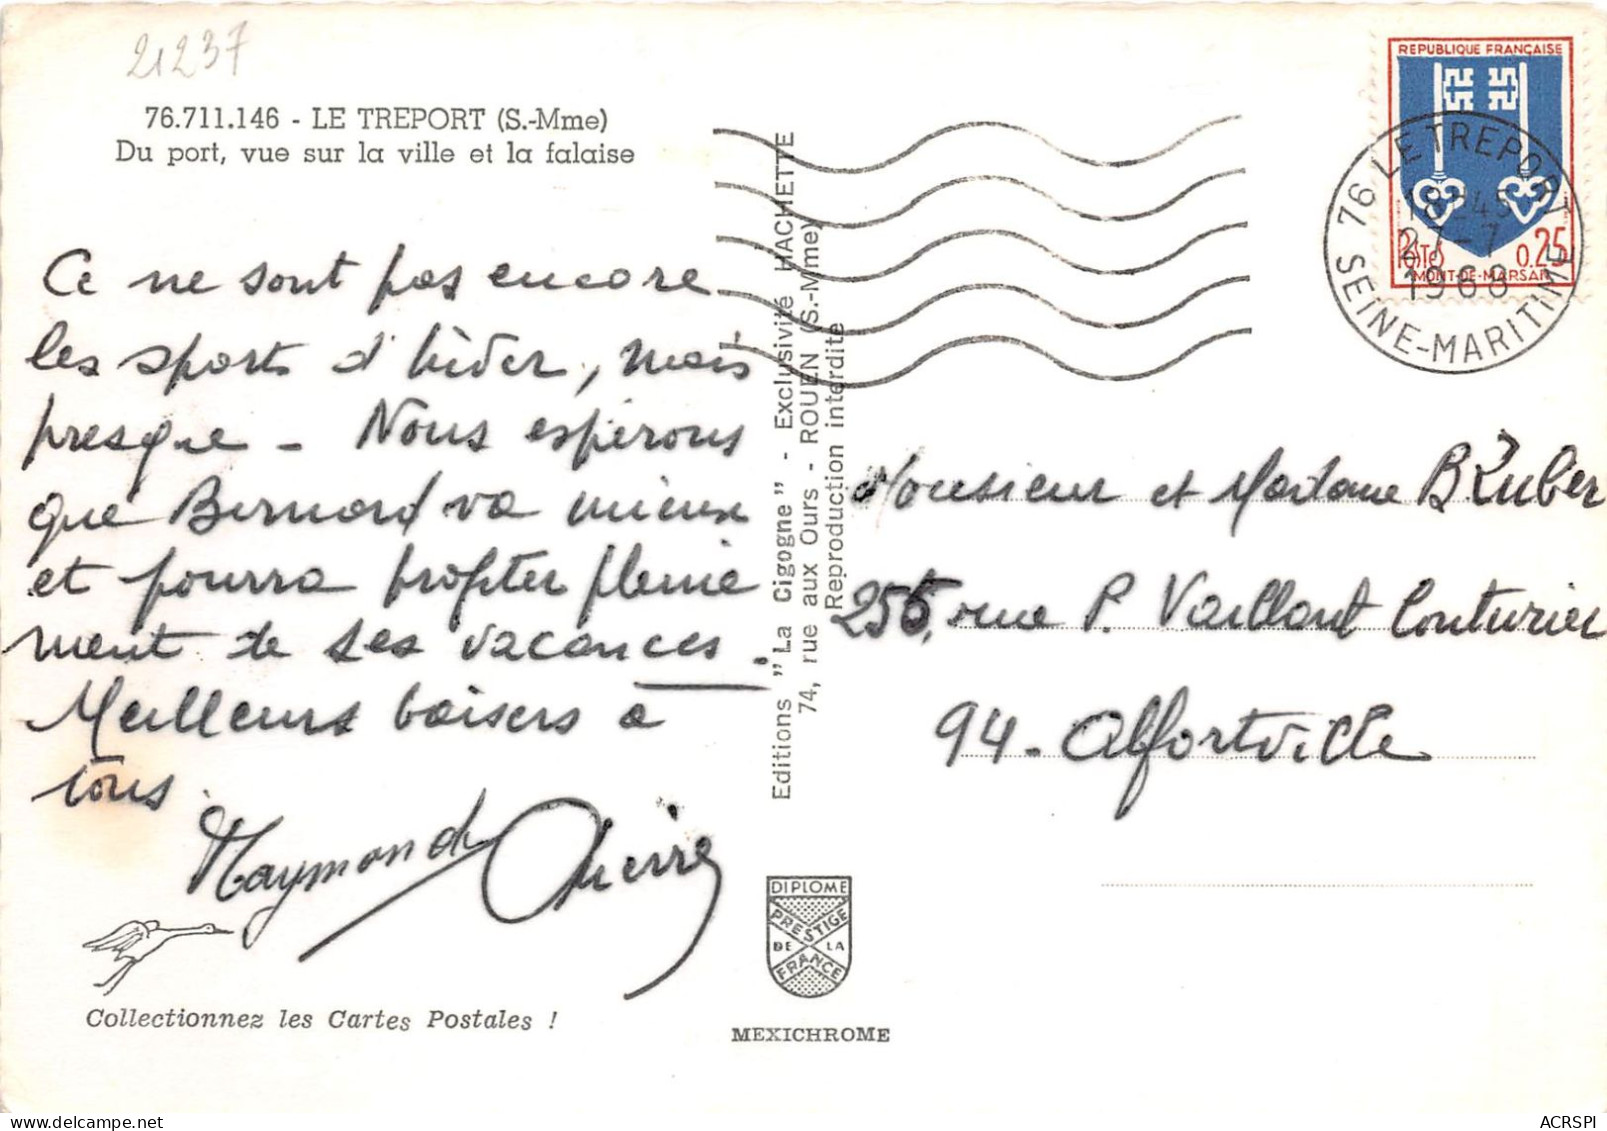 21237
76.711.146 - LE TREPORT (S.-Mme)
Du port, vue sur la ville et la falaise
Ce ne sont pas encore
les sports d'hiver, mais
presque - Nous espérons
que Bernard va mieux
et pourra profiter pleine
ment de ses vacances.
Meilleurs baisers à
tous.
Raymond Pierre
Collectionnez les Cartes Postales !
Editions "La Cigogne" - Exclusivité HACHETTE
74, rue aux Ours - ROUEN (S.-Mme)
Reproduction interdite
DIPLOME
PRESTIGE
DE LA
FRANCE
MEXICHROME
REPUBLIQUE FRANÇAISE
POSTES 0.25
MONT-DE-MARSAN
76 LE TREPORT
18H45
27-7
1968
SEINE-MARITIME
Monsieur et Madame B
255, rue P. Vaillant Couturier
94 - Alfortville
ACRSPI